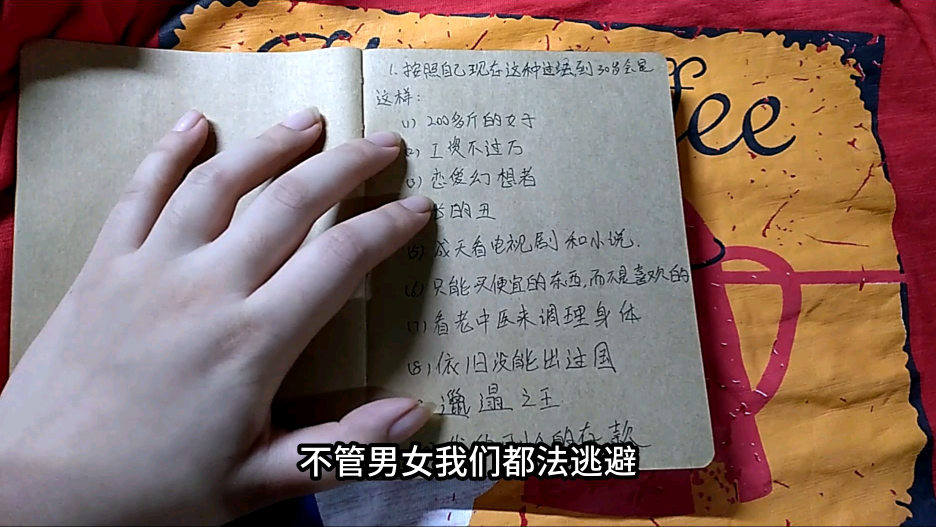 1. 按照自己现在这种过法到30岁会是
这样：
(1) 200多斤的女子
(2) 工资不过万
(3) 恋爱幻想者
长的丑
(5) 成天看电视剧和小说.
(6) 只能买便宜的东西,而不是喜欢的
(7) 看老中医来调理身体
(8) 依旧没能出过国
邋遢之王
的存款
ffee
不管男女我们都法逃避